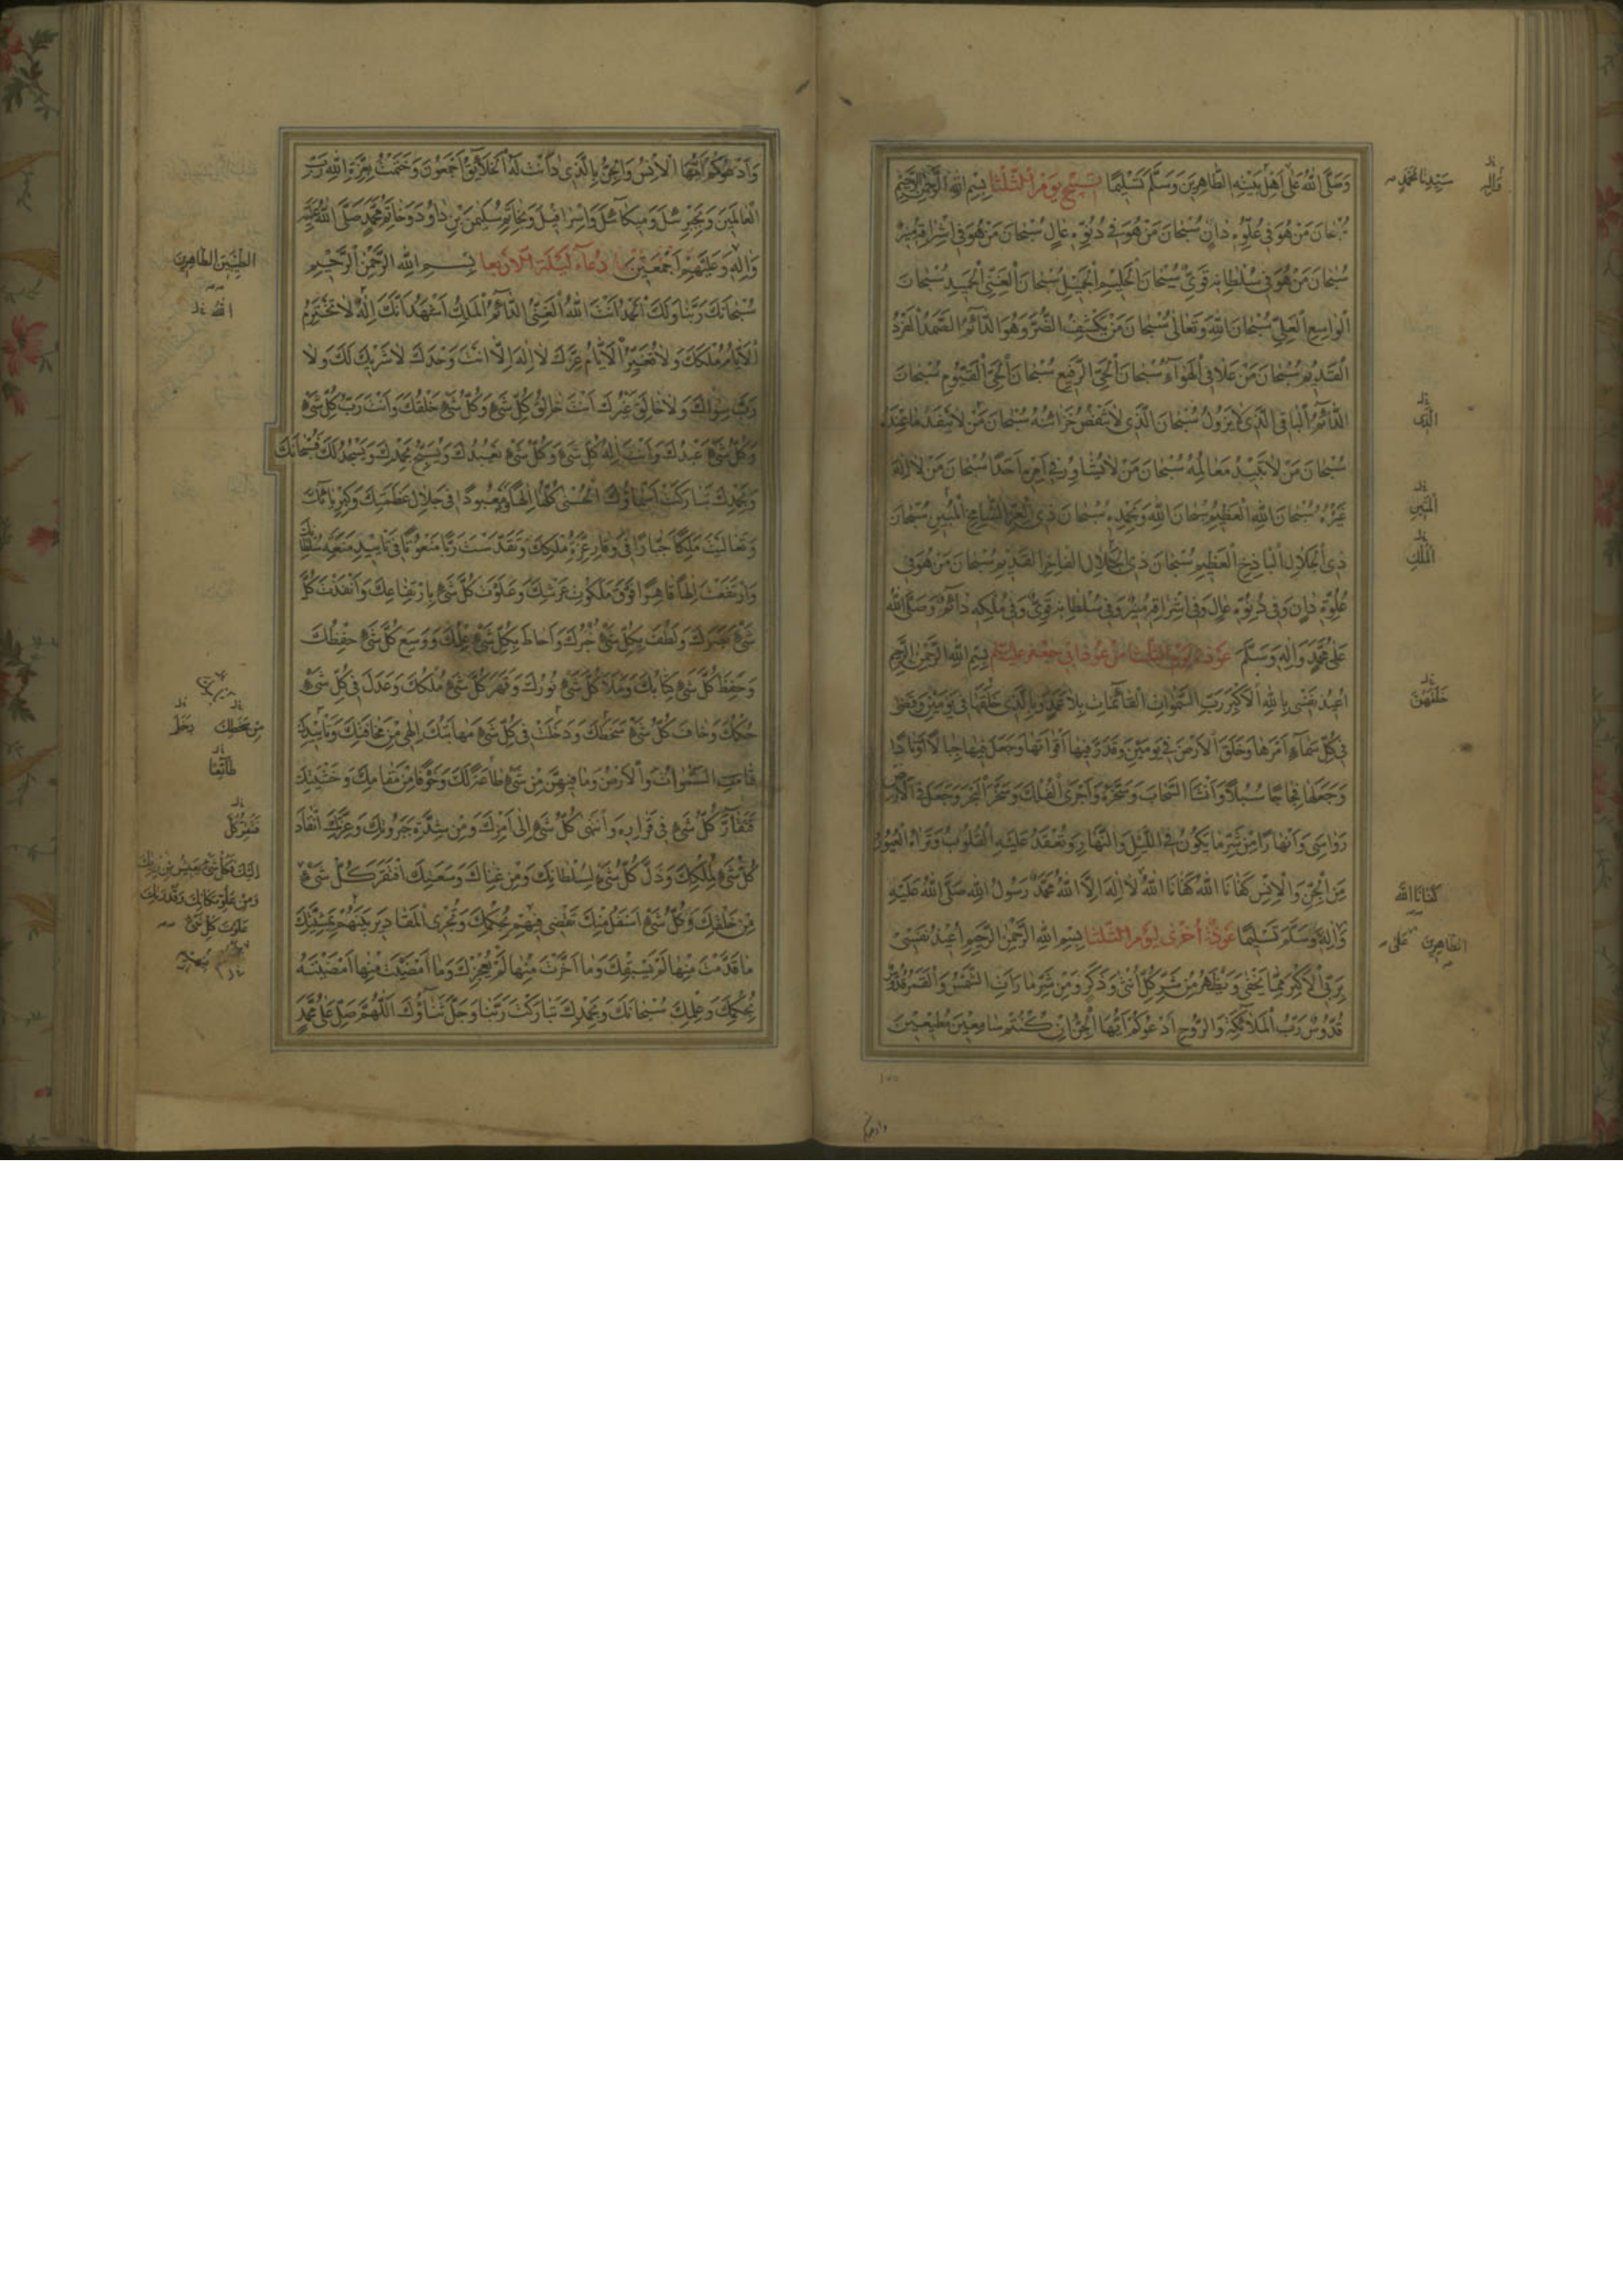 وَصَلَّى اللهُ عَلى اَهْلِ بَيْتِهِ الطّاهِرينَ وَسَلَّمَ تَسْليمًا تسبيح يوم الثلثا بِسْمِ اللهِ الرَّحْمنِ الرَّحيمِ
سُبْحانَ مَنْ هُوَ في عُلُوِّهِ دانٍ سُبْحانَ مَنْ هُوَ في دُنُوِّهِ عالٍ سُبْحانَ مَنْ هُوَ في اِشْراقِهِ مُنيرٌ
سُبْحانَ مَنْ هُوَ في سُلْطانِهِ قَوِيٌّ سُبْحانَ الْحَليمِ الْجَميلِ سُبْحانَ الْغَنِيِّ الْحَميدِ سُبْحانَ
الْواسِعِ الْعَلِيِّ سُبْحانَ اللهِ وَتَعالى سُبْحانَ مَنْ يَكْشِفُ الضُّرَّ وَهُوَ الدّآئِمُ الصَّمَدُ الْفَرْدُ
الْقَديمُ سُبْحانَ مَنْ عَلا فِي الْهَوآءِ سُبْحانَ الْحَيِّ الرَّفيعِ سُبْحانَ الْحَيِّ الْقَيُّومِ سُبْحانَ
الدّآئِمِ الْباقِي الَّذي لا يَزُولُ سُبْحانَ الَّذي لا تَنْقُصُ خَزائِنُهُ سُبْحانَ مَنْ لا يَنْفَدُ ما عِنْدَهُ
سُبْحانَ مَنْ لا تَبيدُ مَعالِمُهُ سُبْحانَ مَنْ لا يُشاوِرُ في اَمْرِهِ اَحَدًا سُبْحانَ مَنْ لا اِلهَ
غَيْرُهُ سُبْحانَ اللهِ الْعَظيمِ سُبْحانَ اللهِ وَبِحَمْدِهِ سُبْحانَ ذِي الْعِزِّ الشّامِخِ الْمُبينِ سُبْحانَ
ذِي الْجَلالِ الْباذِخِ الْعَظيمِ سُبْحانَ ذِي الْجَلالِ الْفاخِرِ الْقَديمِ سُبْحانَ مَنْ هُوَ في
عُلُوِّهِ دانٍ وَفي دُنُوِّهِ عالٍ وَفي اِشْراقِهِ مُنيرٌ وَفي سُلْطانِهِ قَوِيٌّ وَفي مُلْكِهِ دآئِمٌ وَصَلَّى اللهُ
عَلى مُحَمَّدٍ وَالِهِ وَسَلَّمَ عوذة يوم الثلثا من عوذ ابي جعفر عليه السلم بِسْمِ اللهِ الرَّحْمنِ الرَّحيمِ
اُعيذُ نَفْسي بِاللهِ الْاَكْبَرِ رَبِّ السَّمواتِ الْقآئِماتِ بِلا عَمَدٍ وَبِالَّذي خَلَقَها في يَوْمَيْنِ وَقَضى
في كُلِّ سَمآءٍ اَمْرَها وَخَلَقَ الْاَرْضَ في يَوْمَيْنِ وَقَدَّرَ فيها اَقْواتَها وَجَعَلَ فيها جِبالًا اَوْتادًا
وَجَعَلَها فِجاجًا سُبُلًا وَاَنْشَاَ السَّحابَ وَسَخَّرَهُ وَاَجْرَى الْفُلْكَ وَسَخَّرَ الْبَحْرَ وَجَعَلَ فِي الْاَرْضِ
رَواسِيَ وَاَنْهارًا مِنْ شَرِّ ما يَكُونُ فِي اللَّيْلِ وَالنَّهارِ وَتُعْقَدُ عَلَيْهِ الْقُلُوبُ وَتَراهُ الْعُيُونُ
مِنَ الْجِنِّ وَالْاِنْسِ كَفانَا اللهُ كَفانَا اللهُ لا اِلهَ اِلَّا اللهُ مُحَمَّدٌ رَسُولُ اللهِ صَلَّى اللهُ عَلَيْهِ
وَالِهِ وَسَلَّمَ تَسْليمًا عوذة اخرى ليوم الثلثا بِسْمِ اللهِ الرَّحْمنِ الرَّحيمِ اُعيذُ نَفْسي
بِرَبِّي الْاَكْبَرِ مِمّا يَخْفى وَيَظْهَرُ مِنْ شَرِّ كُلِّ اُنْثى وَذَكَرٍ وَمِنْ شَرِّ ما رَاَتِ الشَّمْسُ وَالْقَمَرُ قُدُّوسٌ
قُدُّوسٌ رَبُّ الْمَلآئِكَةِ وَالرُّوحِ اَدْعُوكُمْ اَيُّهَا الْجِنُّ اِنْ كُنْتُمْ سامِعينَ مُطيعينَ
وَاله
سَيِّدِنا مُحَمَّدٍ
الَّذي
الْمُبينِ
الْمُلْكِ
خَلَقَهُنَّ
كَفانَا اللهُ
على الطّاهِرينَ
وَاَدْعُوكُمْ اَيُّهَا الْاِنْسُ وَالْجِنُّ بِالَّذي دانَتْ لَهُ الْخَلآئِقُ اَجْمَعُونَ وَخَتَمْتُ بِعِزَّةِ اللهِ رَبِّ
الْعالَمينَ وَبِجَبْرَئيلَ وَميكآئيلَ وَاِسْرافيلَ وَبِخاتَمِ سُلَيْمنَ بْنِ داوُدَ وَخاتَمِ مُحَمَّدٍ صَلَّى اللهُ عَلَيْهِ
وَالِهِ وَعَلَيْهِمْ اَجْمَعينَ دعآء ليلة الاربعا بِسْمِ اللهِ الرَّحْمنِ الرَّحيمِ
سُبْحانَكَ رَبَّنا وَلَكَ الْحَمْدُ اَنْتَ اللهُ الْغَنِيُّ الدّآئِمُ الْمَلِكُ اَشْهَدُ اَنَّكَ اِلهٌ لا تَخْتَرِمُ
الْاَيّامُ مُلْكَكَ وَلا تُغَيِّرُ الْاَيّامُ عِزَّكَ لا اِلهَ اِلّا اَنْتَ وَحْدَكَ لا شَريكَ لَكَ وَلا
رَبَّ سِواكَ وَلا خالِقَ غَيْرُكَ اَنْتَ خالِقُ كُلِّ شَيْءٍ وَكُلُّ شَيْءٍ خَلْقُكَ وَاَنْتَ رَبُّ كُلِّ شَيْءٍ
وَكُلُّ شَيْءٍ عَبْدُكَ وَاَنْتَ اِلهُ كُلِّ شَيْءٍ وَكُلُّ شَيْءٍ يَعْبُدُكَ وَيُسَبِّحُ بِحَمْدِكَ وَيَسْجُدُ لَكَ فَسُبْحانَكَ
وَبِحَمْدِكَ تَبارَكَتْ اَسْمآؤُكَ الْحُسْنى كُلُّها اِلهًا مَعْبُودًا في جَلالِ عَظَمَتِكَ وَكِبْرِيآئِكَ
وَتَعالَيْتَ مَلِكًا جَبّارًا في وَقارِ عِزَّةِ مُلْكِكَ وَتَقَدَّسْتَ رَبًّا مَنْعُوتًا في تَأييدِ مَنَعَةِ سُلْطانِكَ
وَارْتَفَعْتَ اِلهًا قاهِرًا فَوْقَ مَلَكُوتِ عَرْشِكَ وَعَلَوْتَ كُلَّ شَيْءٍ بِارْتِفاعِكَ وَاَنْفَذْتَ كُلَّ
شَيْءٍ بَصَرَكَ وَلَطُفَ بِكُلِّ شَيْءٍ خُبْرُكَ وَاَحاطَ بِكُلِّ شَيْءٍ عِلْمُكَ وَوَسِعَ كُلَّ شَيْءٍ حِفْظُكَ
وَحَفِظَ كُلَّ شَيْءٍ كِتابُكَ وَمَلَاَ كُلَّ شَيْءٍ نُورُكَ وَقَهَرَ كُلَّ شَيْءٍ مُلْكُكَ وَعَدَلَ في كُلِّ شَيْءٍ
حُكْمُكَ وَخافَ كُلُّ شَيْءٍ سَخَطَكَ وَدَخَلَتْ في كُلِّ شَيْءٍ مَهابَتُكَ اِلهي مِنْ مَخافَتِكَ وَتَأييدِكَ
قامَتِ السَّمواتُ وَالْاَرْضُ وَما فيهِنَّ مِنْ شَيْءٍ طاعَةً لَكَ وَخَوْفًا مِنْ مَقامِكَ وَخَشْيَتِكَ
فَتَقآرَّ كُلُّ شَيْءٍ في قَرارِهِ وَانْتَهى كُلُّ شَيْءٍ اِلى اَمْرِكَ وَمِنْ شِدَّةِ جَبَرُوتِكَ وَعِزَّتِكَ انْقادَ
كُلُّ شَيْءٍ لِمُلْكِكَ وَذَلَّ كُلُّ شَيْءٍ لِسُلْطانِكَ وَمِنْ غِناكَ وَسَعَتِكَ افْتَقَرَ كُلُّ شَيْءٍ
مِنْ خَلْقِكَ وَكُلُّ شَيْءٍ اَسْفَلُ مِنْكَ تَقْضي فيهِمْ بِحُكْمِكَ وَتُجْرِي الْمَقاديرَ بَيْنَهُمْ بِمَشِيَّتِكَ
ما قَدَّمْتَ مِنْها لَمْ يَسْبِقْكَ وَما اَخَّرْتَ مِنْها لَمْ يُعْجِزْكَ وَما اَمْضَيْتَ مِنْها اَمْضَيْتَهُ
بِحُكْمِكَ وَعِلْمِكَ سُبْحانَكَ وَبِحَمْدِكَ تَبارَكْتَ رَبَّنا وَجَلَّ ثَنآؤُكَ اَللّهُمَّ صَلِّ عَلى مُحَمَّدٍ
الطَّيِّبينَ الطّاهِرينَ
اللهُ
مِنْ سَخَطِكَ دخل